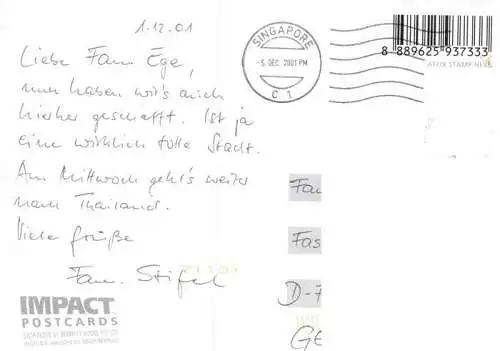 1.12.01
Liebe Fam Ege,
nun haben wir's auch
hierher geschafft. Ist ja
eine wirklich tolle Stadt.
Am Mittwoch geht's weiter
nach Thailand.
Viele Grüße
Fam. Stifel
SINGAPORE
-5 DEC 2001 PM
C 1
8 889625 937333
AFFIX STAMP HERE
Fa
Fas
D-7
GE
IMPACT
POSTCARDS